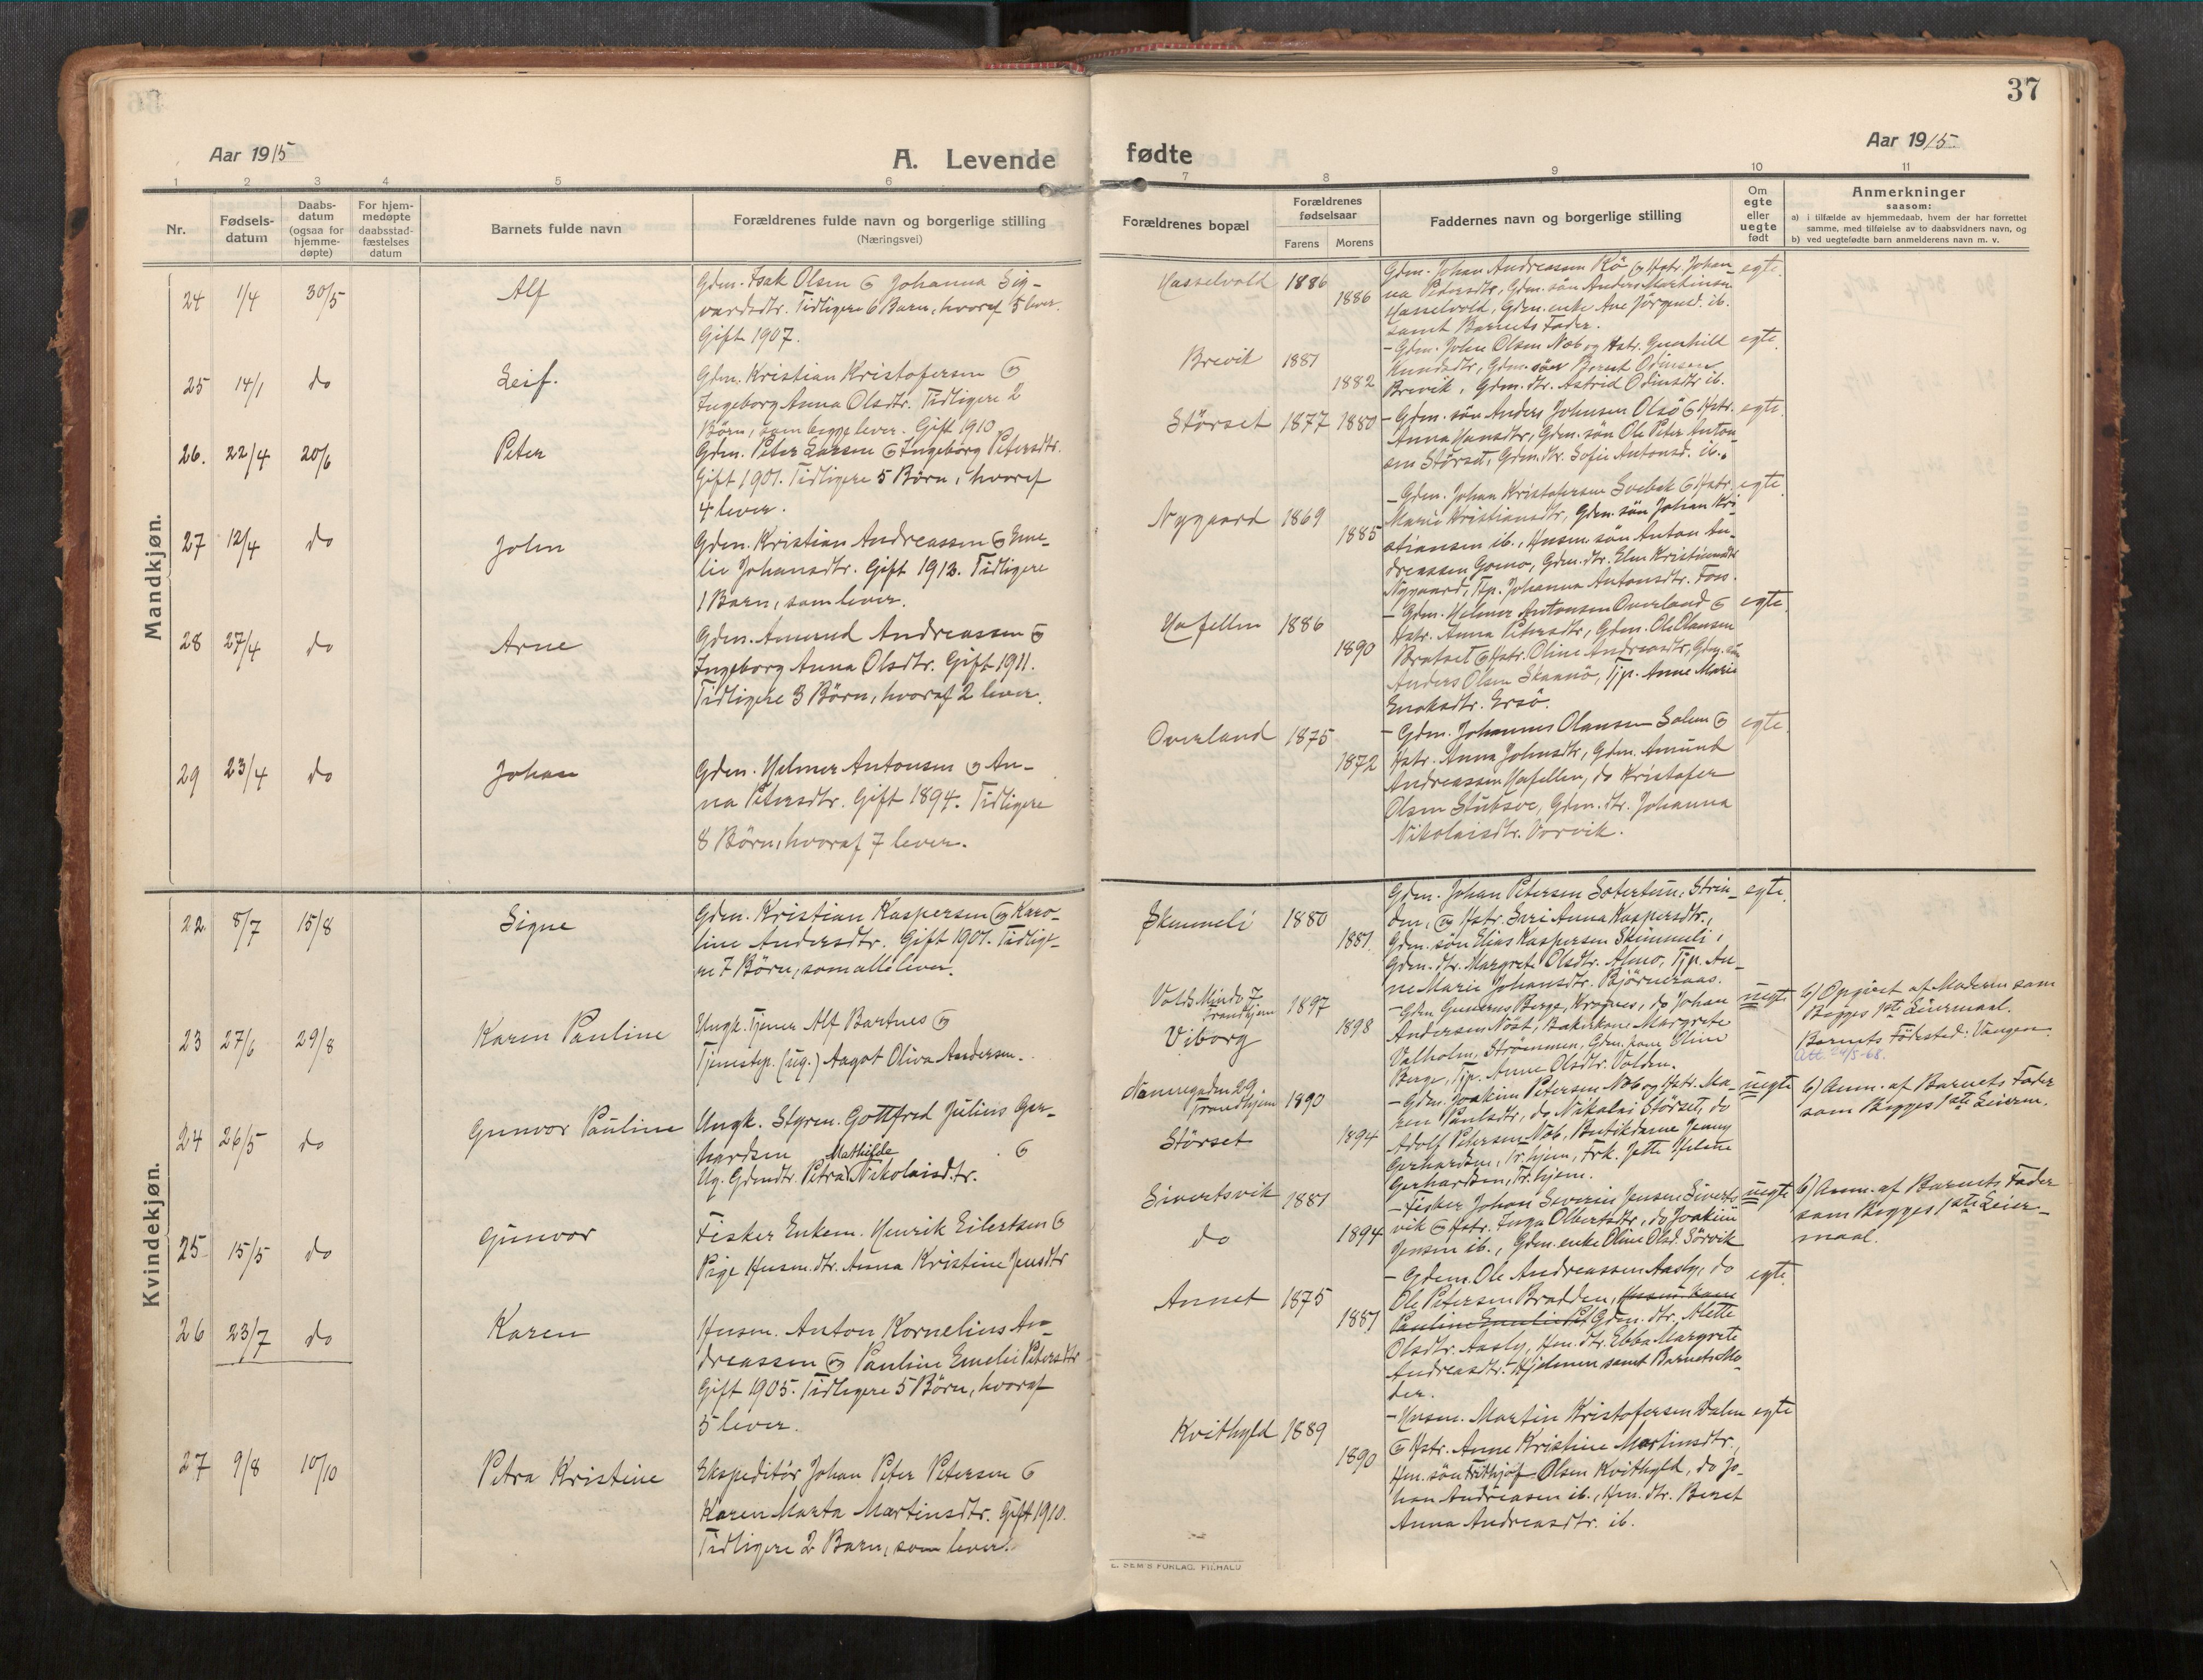 37
Aar 1915
A. Levende
fødte
Aar 1915
1 2 3 4 5 6 7 8 9 10 11
Nr.
Fødsels-
datum
Daabs-
datum
(ogsaa for
hjemme-
døpte)
For hjem-
medøpte
daabsstad-
fæstelses
datum
Barnets fulde navn
Forældrenes fulde navn og borgerlige stilling
(Næringsvei)
Forældrenes bopæl
Forældrenes
fødselsaar
Farens Morens
Faddernes navn og borgerlige stilling
Om
egte
eller
uegte
født
Anmerkninger
saasom:
a) i tilfælde av hjemmedaab, hvem der har forrettet
samme, med tilføielse av to daabsvidners navn, og
b) ved uegtefødte barn anmelderens navn m. v.
Mandkjøn.
24 1/4 30/5 Alf
Gdm. Isak Olsen & Johanna Sig-
vardsdtr. Tidligere 6 Barn, hvoraf 5 lever.
Gift 1907.
Hasselvold 1886
1886
Gdm. Johan Andreassen Rö & Hstr. Johan-
na Petersdtr, Gdm. søn Anders Martinsen
Hasselvold, Gdm. enke Ane Jörgensd. ib.
samt Barnets Fader.
egte.
25 14/1 do Leif.
Gdm. Kristian Kristofersen &
Ingeborg Anna Olsdtr. Tidligere 2
Börn, som begge lever. Gift 1910
Brevik 1881
1882
- Gdm. John Olsen Næb og Hstr. Gunhild
Knudsdtr, Gdm. søn Bernt Odinsen
Brevik, Gdm. dtr. Astrid Odinsdtr ib.
egte.
26. 22/4 20/6 Peter
Gdm. Peter Larsen & Ingeborg Petersdtr.
Gift 1901. Tidligere 5 Börn, hvoraf
4 lever.
Störset 1877 1880
- Gdm. søn Anders Johnsen Olsö & Hstr.
Anna Hansdtr, Gdm. søn Ole Peter Anton-
sen Störset, Gdm. dtr. Sofie Antonsd. ib.
egte.
27 12/4 do John
Gdm. Kristian Andreassen & Eme-
lie Johansdtr. Gift 1913. Tidligere
1 Barn, som lever.
Nygaard 1869
1885
- Gdm. Johan Kristofersen Svebak & Hstr.
Marie Kristiansdtr, Gdm. søn Johan Kri-
stiansen ib., Husm. søn Anton An-
dreassen Gomo, Gdm. dtr. Elen Kristiansdtr
Nygaard, Tjp. Johanna Antonsdtr. Foss.
egte.
28 27/4 do Arne
Gdm. Amund Andreassen &
Ingeborg Anna Olsdtr. Gift 1911.
Tidligere 3 Börn, hvoraf 2 lever.
Hafellen 1886
1890
- Gdm. Helmer Antonsen Overland &
Hstr. Anna Petersdtr, Gdm. Ole Olausen
Bratset & Hstr. Oline Andreasdtr, Gdm. søn
Anders Olsen Skaanö, Tjp. Anne Marie
Enoksdtr. Ersö.
egte.
29 23/4 do Johan
Gdm. Helmer Antonsen & An-
na Petersdtr. Gift 1894. Tidligere
8 Börn, hvoraf 7 lever.
Overland 1875
1872
- Gdm. Johannes Olausen Solem &
Hstr. Anna Johnsdtr, Gdm. Amund
Andreassen Hafellen, do Kristofer
Olsen Stubsve, Gdm. dtr. Johanna
Nikolaisdtr. Vorvik.
egte.
Kvindekjøn.
22 8/7 15/8 Signe
Gdm. Kristian Kaspersen & Karo-
line Andersdtr. Gift 1901. Tidlige-
re 7 Börn, som alle lever.
Skummeli 1880
1881.
Gdm. Johan Petersen Sætertun, Strin-
den, & Hstr. Siri Anna Kaspersdtr.,
Gdm. søn Elias Kaspersen Skummeli,
Gdm. dtr. Margrete Olsdtr. Almo, Tjp. An-
ne Marie Johansdtr. Björneraas.
egte.
23 27/6 29/8 Karen Pauline
Ungk. Tjener Alf Bartnes &
Tjenestep. (ug.) Aagot Oliva Andersen.
Volds Minde 7
Trondhjem
Viborg
1897
1898
- Gdm Gunerius Berge, Kraknes, do Johan
Andersen Nöst, Bakerkone Margrete
Valholm, Strömmen, Gdm. kone Oline
Berge, Tjp. Anne Olsdtr. Volden.
uegte
b) Opgivet af Moderen som
Begges 1ste Leiermaal.
Barnets Födested: Vangen.
Att. 24/5-68.
24 26/5 do Gunvor Pauline
Ungk. Styrm. Gottfred Julius Ger-
hardsen &
Ug. Gdmdtr. Petra Mathilde Nikolaisd.tr.
Nannegaden 29
Trondhjem
Störset
1890
1894
- Gdm. Joakim Petersen Næb og Hstr. Ma-
ren Paulsdtr, do Nikolai Störset, do
Adolf Petersen Næb, Butikdame Jenny
Gerhardsen, Tr.hjem, Frk. Jette Helene
Gerhardsen, Tr.hjem.
uegte
b) Anm. af Barnets Fader
som Begges 1ste Leierm.
25 15/5 do Gunvor
Fisker Enkem. Henrik Eilertsen &
Pige Husm. dtr. Anna Kristine Jensdtr
Sivertsvik
do
1881
1894
- Fisker Johan Severin Jensen Siverts-
vik & Hstr. Inga Olbertsdtr, do Joakim
Jensen ib., Gdm. enke Oline Olsd. Sörvik
uegte
b) Anm. af Barnets Fader
som Begges 1ste Leier-
maal.
26 23/7 do Karen
Husm. Anton Kornelius An-
dreassen & Pauline Emelie Petersdtr
Gift 1905. Tidligere 5 Börn, hvoraf
5 lever.
Annet 1875
1881
- Gdm. Ole Andreassen Aasly, do
Ole Petersen Bradden, Husm. kone
Pauline Emelie Pet Gdm. dtr. Alette
Olsdtr. Aasly, Hm. dtr. Ebba Margrete
Andreasdtr. Hjelmen samt Barnets Mo-
der.
egte.
27 9/8 10/10 Petra Kristine
Ekspeditör Johan Peter Petersen &
Karen Marta Martinsdtr. Gift 1910.
Tidligere 2 Barn, som lever.
Kvithyld 1889
1890
- Husm. Martin Kristofersen Dalen
& Hstr. Anne Kristine Martinsdtr.,
Hm. søn Fridthjof Olsen Kvithyld, do Jo-
han Andreasen ib., Hm. dtr. Beret
Anna Andreasdtr. ib.
egte
E. SEM'S FORLAG, FR.HALD